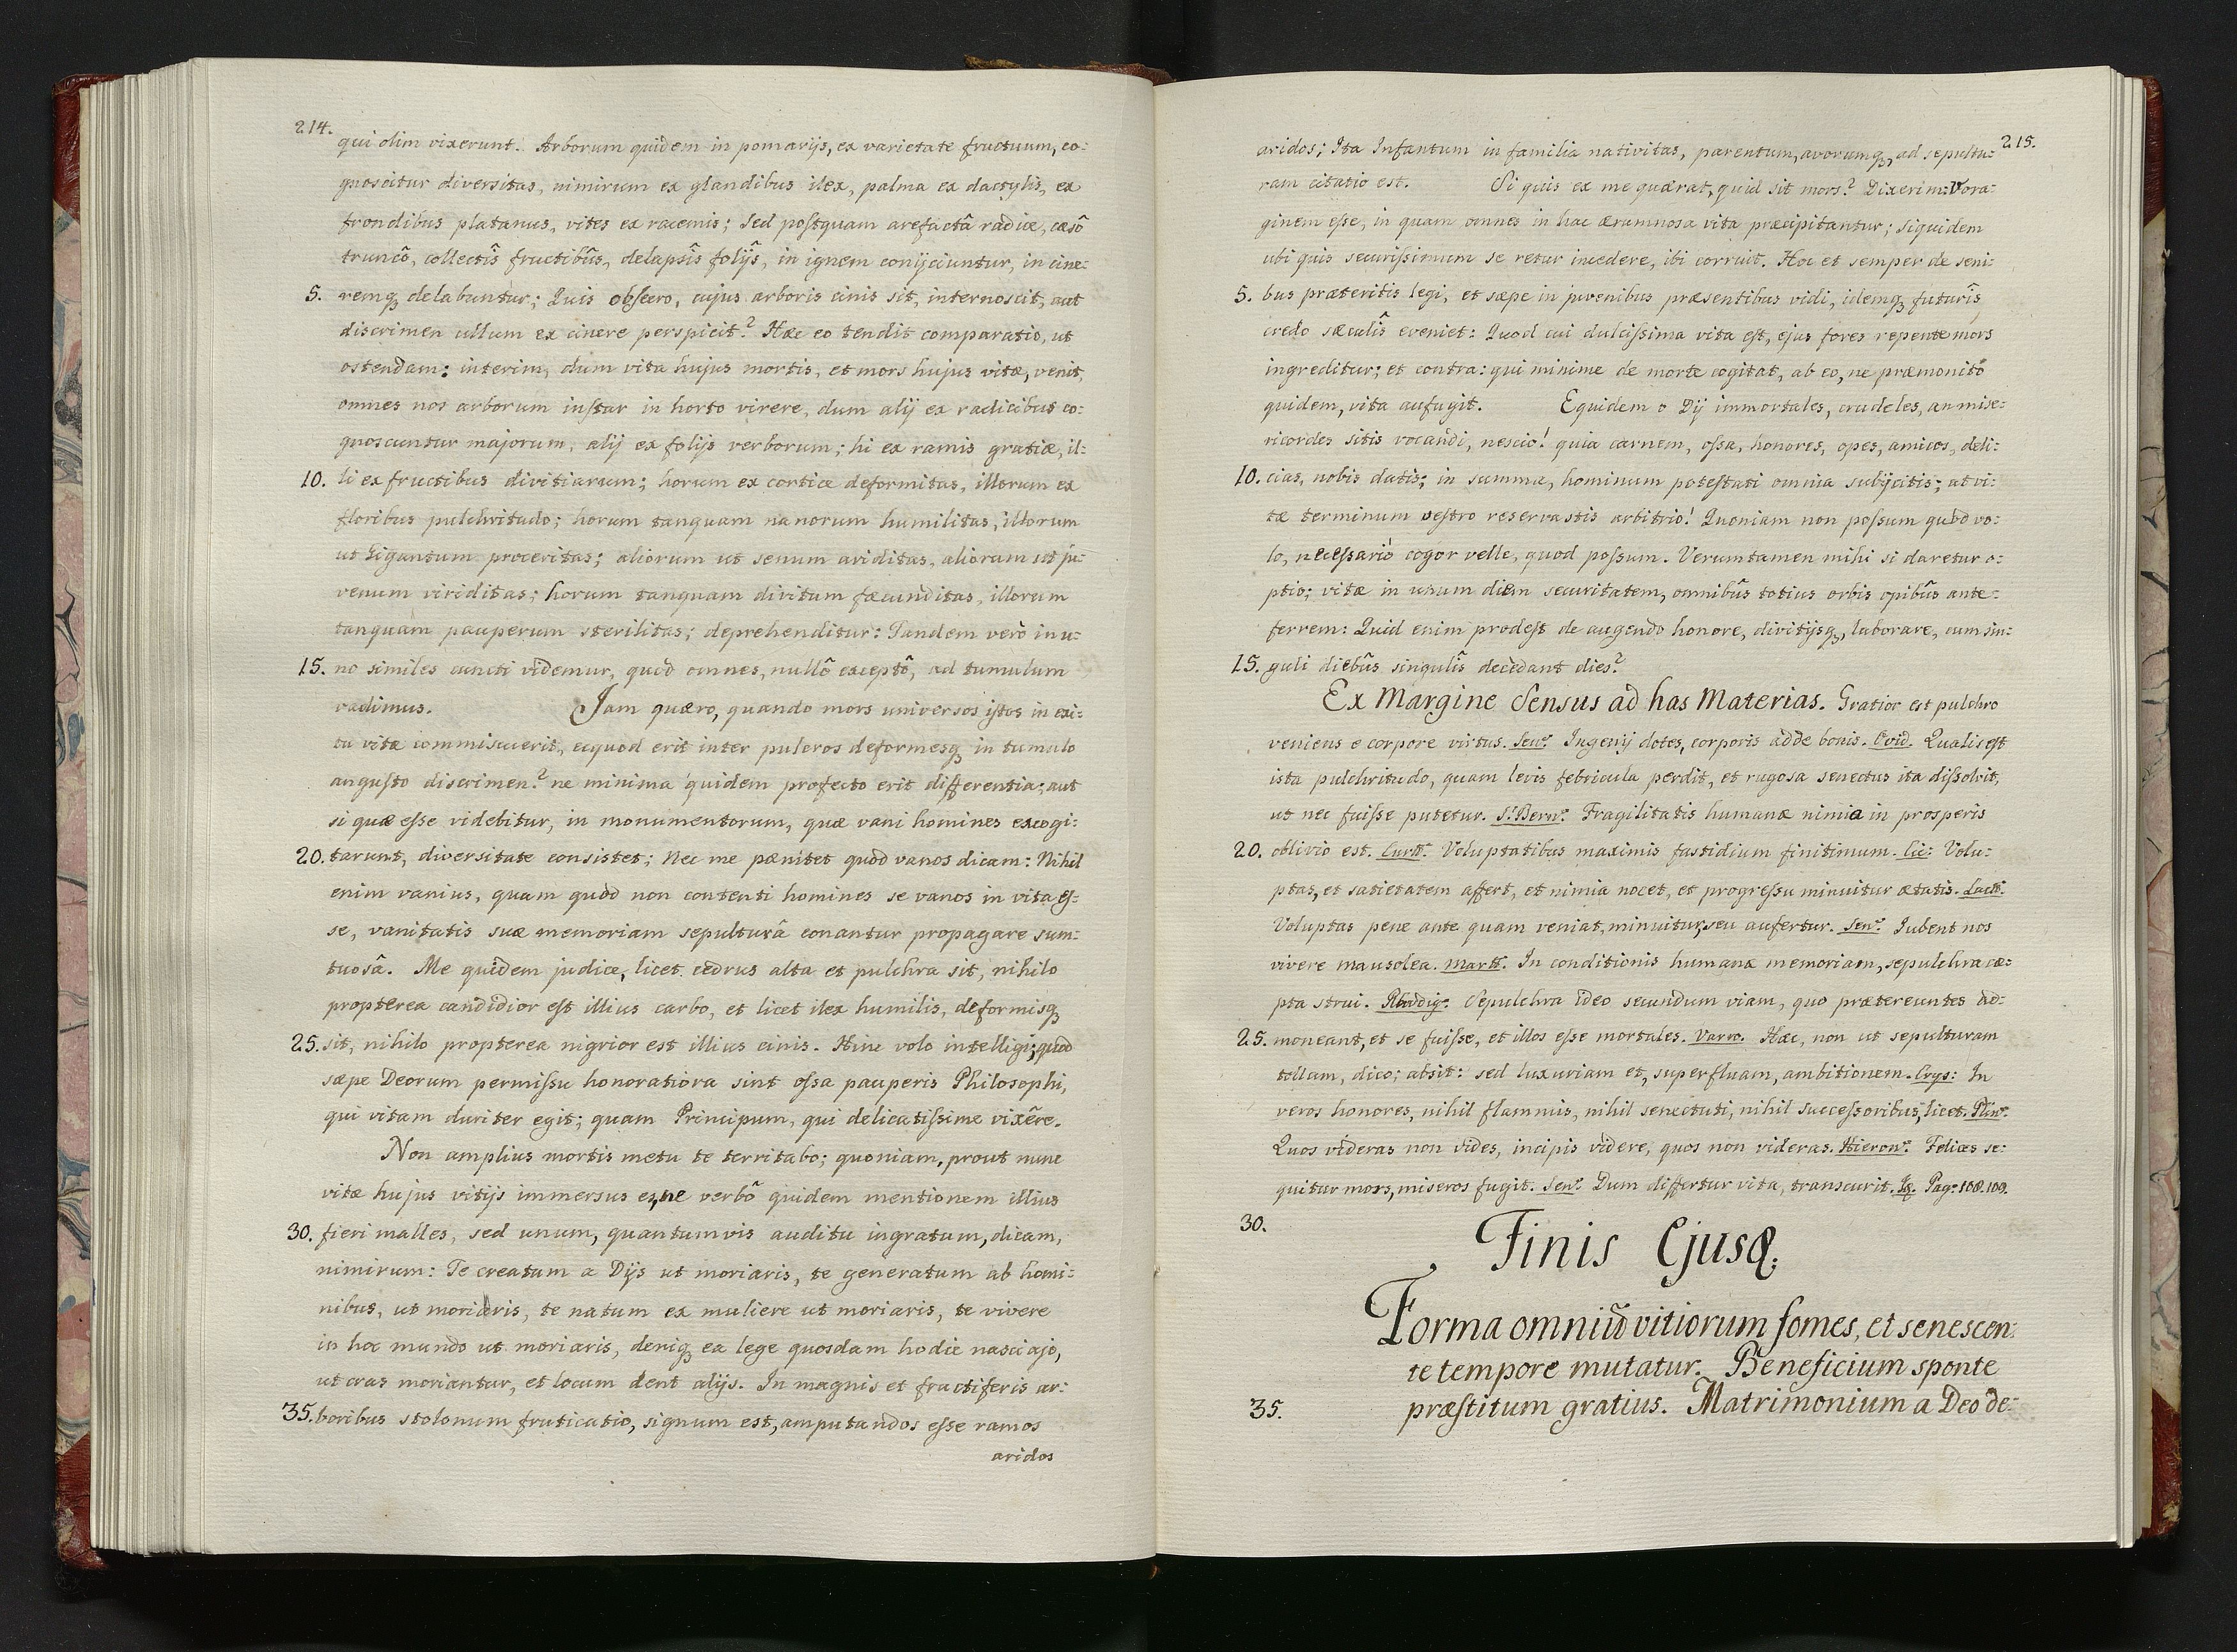 214.
qui olim vixerunt. Arborum quidem in pomarijs, ex varietate fructuum, co:
gnoscitur diversitas, nimirum ex glandibus ilex, palma ex dactylis, ex
frondibus platanus, vites ex racemis; sed postquam arefactâ radice, cæsô
truncô, collectîs fructibûs, delapsîs folijs, in ignem conijciuntur, in cine:
5. remq; delabuntur; Quis obsecro, cujus arboris cinis sit, internoscit, aut
discrimen ullum ex cinere perspicit? Hæc eo tendit comparatio, ut
ostendam: interim, dum vita hujus mortis, et mors hujus vitæ, venit,
omnes nos arborum instar in horto virere, dum alij ex radicibus co:
gnoscuntur majorum, alij ex folijs verborum; hi ex ramis gratiæ, il:
10. li ex fructibus divitiarum; horum ex cortice deformitas, illorum ex
floribus pulchritudo; horum tanquam nanorum humilitas, illorum
ut Gigantum proceritas; aliorum ut senum ariditas, aliorum ut ju:
venum viriditas; horum tanquam divitum fæcunditas, illorum
tanquam pauperum sterilitas; deprehenditur: Tandem verò in u:
15. no similes cuncti videmur, quòd omnes, nullô exceptô, ad tumulum
vadimus. Jam quæro, quando mors universos istos in exi:
tu vitæ commiscuerit, ecquod erit inter pulcros deformesq; in tumulo
angusto discrimen? ne minima quidem profecto erit differentia; aut
si quæ esse videbitur, in monumentorum, quæ vani homines excogi:
20. tarunt, diversitate consistet; Nec me pænitet quòd vanos dicam: Nihil
enim vanius, quam quòd non contenti homines se vanos in vita es:
se, vanitatis suæ memoriam sepulturâ conantur propagare sum:
tuosâ. Me quidem judice, licet cedrus alta et pulchra sit, nihilo
propterea candidior est illius carbo, et licet ilex humilis, deformisq;
25. sit, nihilo propterea nigrior est illius cinis. Hinc volo intelligi; quòd
sæpe Deorum permissu honoratiora sint ossa pauperis Philosophi,
qui vitam duriter egit; quam Principum, qui delicatissime vixêre.
Non amplius mortis metu te territabo; quoniam, prout nunc
vitæ hujus vitijs immersus es, ne verbô quidem mentionem illius
30. fieri malles, sed unum, quantumvis auditu ingratum, dicam,
nimirum: Te creatum a Dijs ut moriaris, te generatum ab homi:
nibus, ut moriaris, te natum ex muliere ut moriaris, te vivere
in hoc mundo ut moriaris, deniq; ea lege quosdam hodie nasci ajo,
ut cras moriantur, et locum dent alijs. In magnis et fructiferis ar:
35. boribus stolonum fruticatio, signum est, amputandos esse ramos
aridos
215.
aridos; Ita Infantum in familia nativitas, parentum, avorumq; ad sepultu:
ram citatio est. Si quis ex me quærat, quid sit mors? Dixerim: Vora:
ginem esse, in quam omnes in hac ærumnosa vita præcipitantur; siquidem
ubi quis securissimum se retur incedere, ibi corruit. Hoc et semper de seni:
5. bus præteritis legi, et sæpe in juvenibus præsentibus vidi, idemq; futurîs
credo sæculîs eveniet: Quod cui dulcissima vita est, ejus fores repente mors
ingreditur; et contra: qui minime de morte cogitat, ab eo, ne præmonitô
quidem, vita aufugit. Equidem o Dij immortales, crudeles, an mise:
ricordes sitis vocandi, nescio! quia carnem, ossa, honores, opes, amicos, deli:
10. cias, nobis datis; in summa, hominum potestati omnia subijcitis; at vi:
tæ terminum vestro reservastis arbitrio! Quoniam non possum quòd vo:
lo, necessariò cogor velle, quod possum. Verumtamen mihi si daretur o:
ptio; vitæ in unum diem securitatem, omnibûs totius orbis opibûs ante:
ferrem: Quid enim prodest de augendo honore, divitijsq; laborare, cum sin:
15. guli diebûs singulîs decedant dies?
Ex Margine Sensus ad has Materias. Gratior est pulchro
veniens e corpore virtus. Sen: Ingenij dotes, corporis adde bonis. Ovid. Qualis est
ista pulchritudo, quam levis febricula perdit, et rugosa senectus ita dissolvit,
ut nec fuisse putetur. S. Bern: Fragilitatis humanæ nimia in prosperis
20. oblivio est. Curtt: Voluptatibus maximis fastidium finitimum. Cic: Volu:
ptas, et satietatem affert, et nimia nocet, et progressu minuitur ætatis. Lactt:
Voluptas pene ante quam veniat, minuitur, seu aufertur. Sen: Iubent nos
vivere mausolea. Martt: In conditionis humanæ memoriam, sepulchra cæ:
pta strui. Rhodig: Sepulchra ideo secundum viam, quo prætereuntes ad:
25. moneant, et se fuisse, et illos esse mortales. Varro. Hæc, non ut sepulturam
tollam, dico; absit: sed luxuriam et, superfluam, ambitionem. Crys: In
veros honores, nihil flammis, nihil senectuti, nihil successoribus, licet. Plin:
Quos videras non vides, incipis videre, quos non videras. Hieron: Felices se:
quitur mors, miseros fugit. Sen: Dum differtur vita, transcurit. Pag: 108. 109.
30.
Finis Ejusq;
Forma omniū vitiorum fomes, et senescen:
te tempore mutatur. Beneficium sponte
35. præstitum gratius. Matrimonium a Deo de: